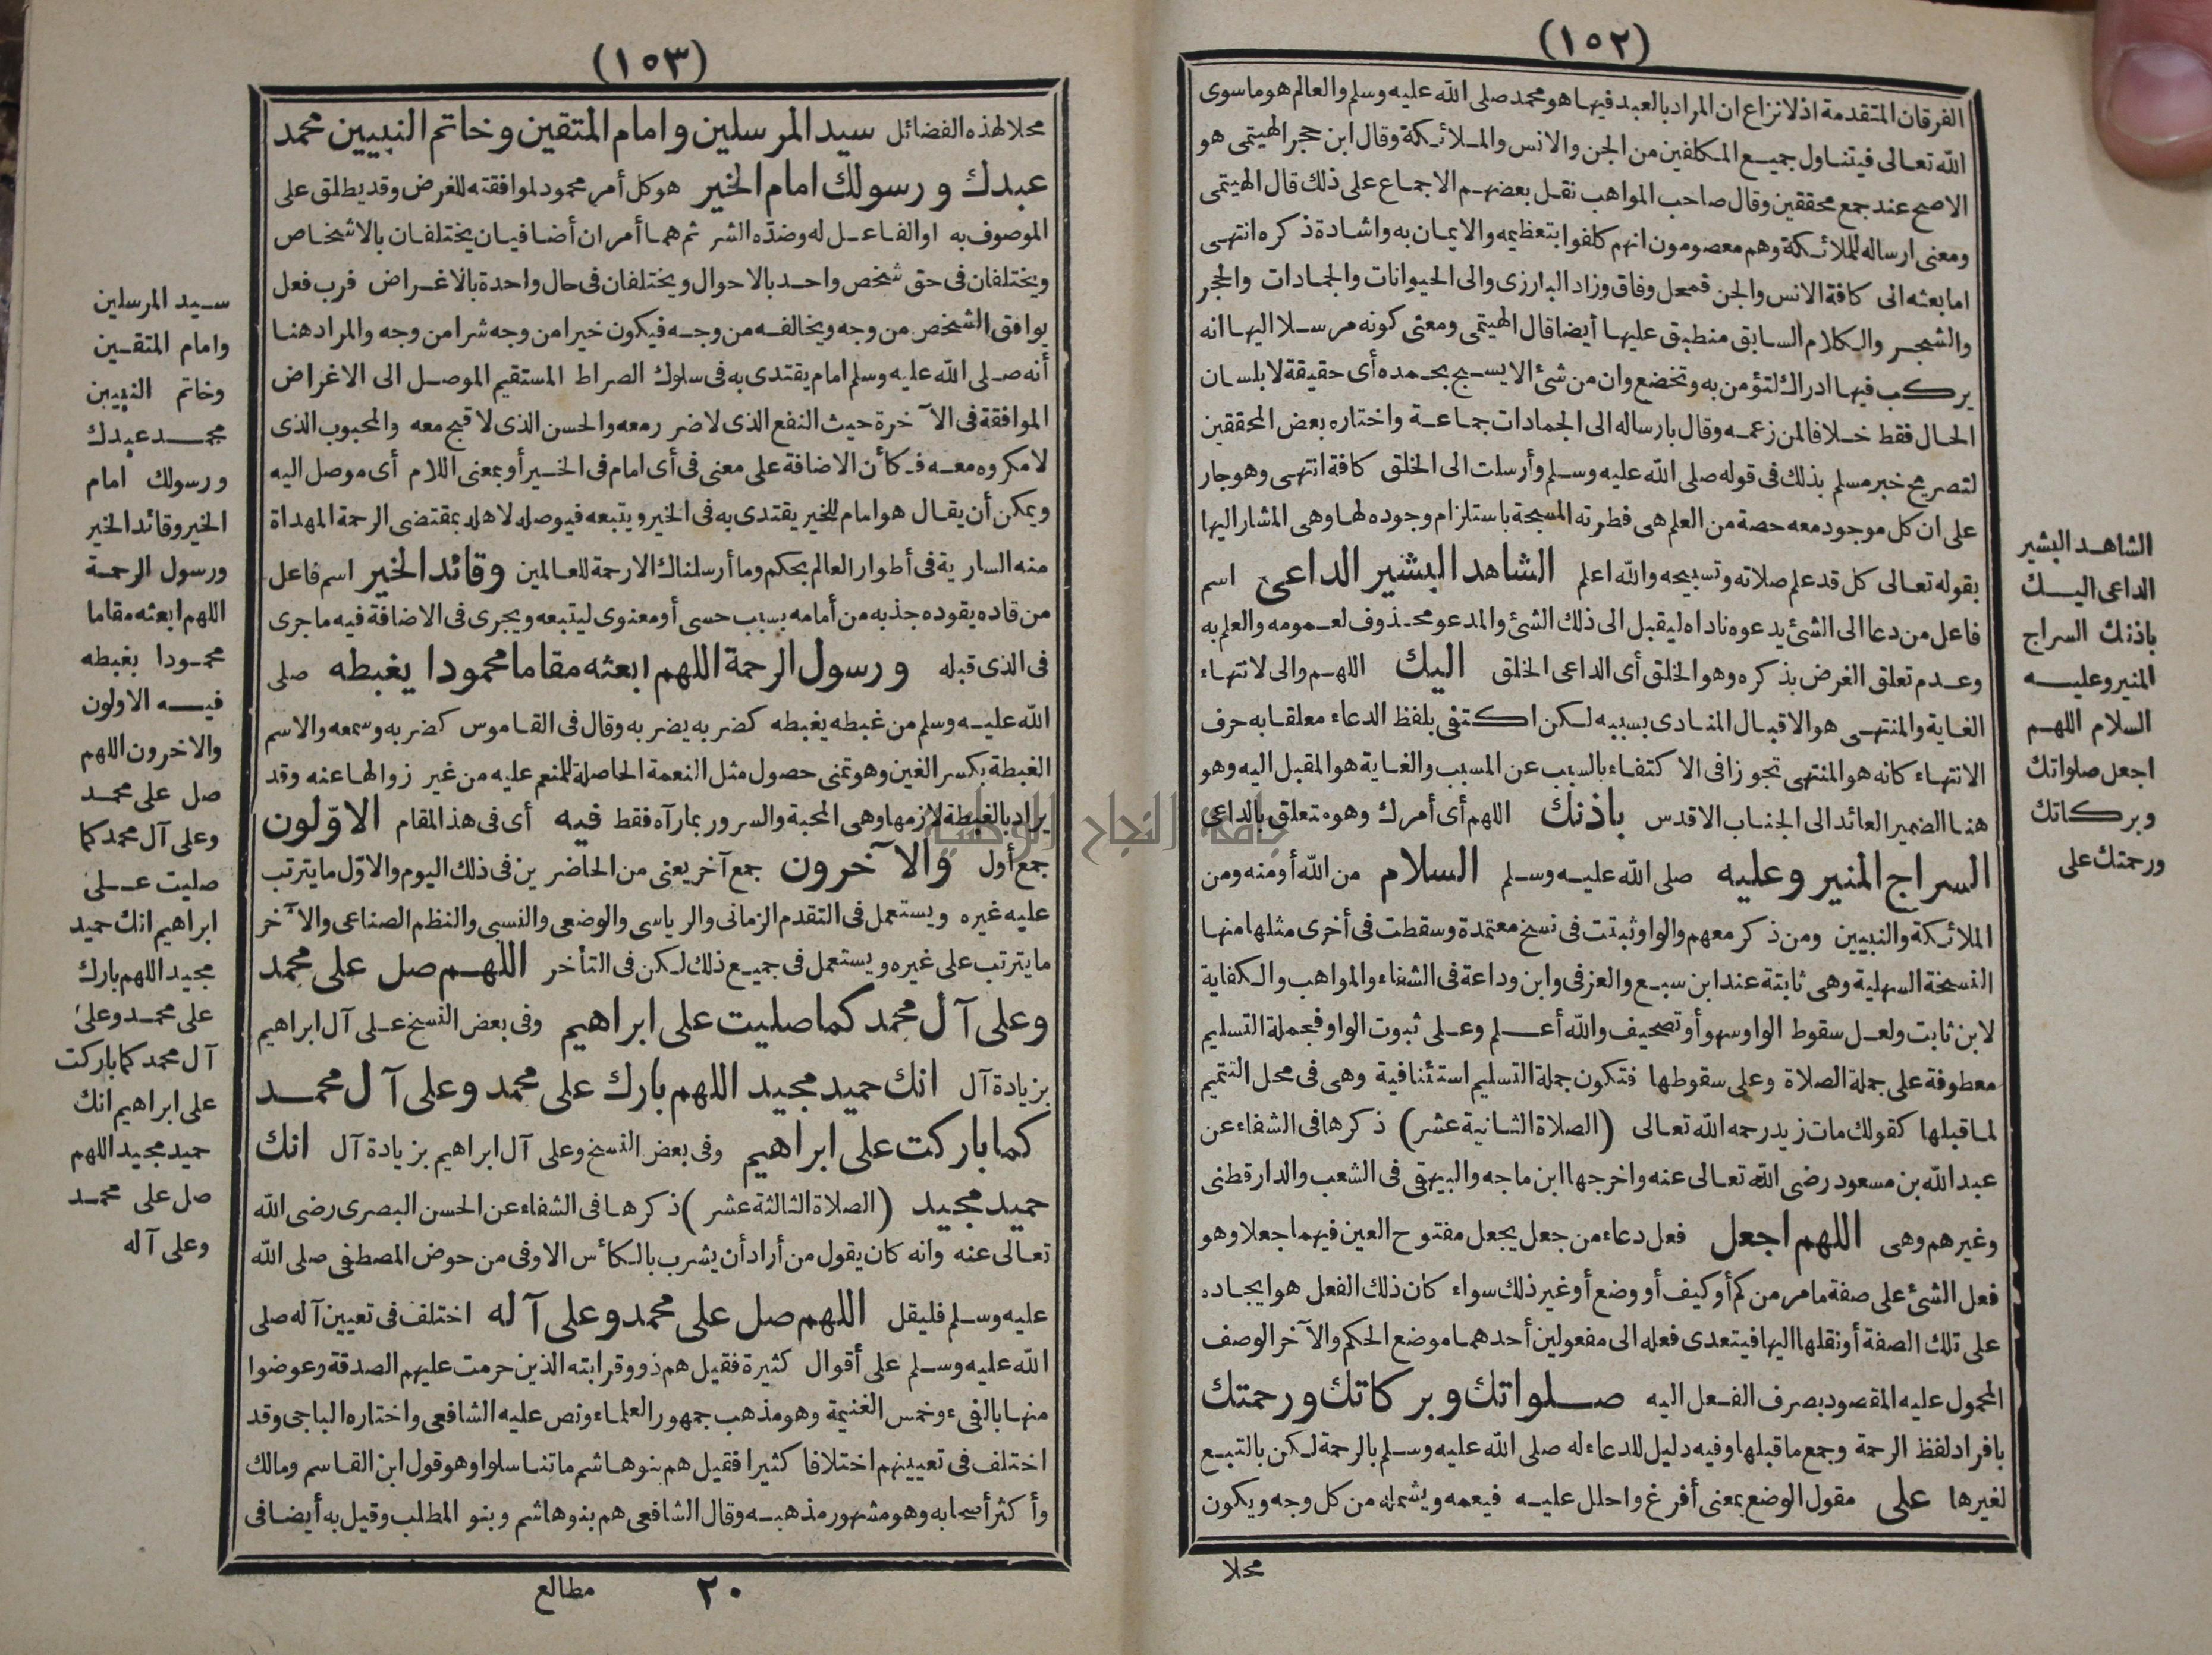 (١٥٢)
الفرقان المتقدمة اذلانزاع ان المراد بالعبد فيها هو محمد صلى الله عليه وسلم والعالم هو ما سوى
الله تعالى فيتناول جميع المكلفين من الجن والانس والملائكة وقال ابن حجر الهيتمى هو
الاصح عند جمع محققين وقال صاحب المواهب نقل بعضهم الاجماع على ذلك قال الهيتمى
ومعنى ارساله للملائكة وهم معصومون انهم كلفوا بتعظيمه والايمان به واشادة ذكره انتهى
اما بعثه الى كافة الانس والجن فمحل وفاق وزاد البارزى والى الحيوانات والجمادات والحجر
والشجر والكلام السابق منطبق عليها أيضا قال الهيتمى ومعنى كونه مرسلا اليها انه
يركب فيها ادراك لتؤمن به وتخضع وان من شئ الا يسبح بحمده أى حقيقة لا بلسان
الحال فقط خلافا لمن زعمه وقال بارساله الى الجمادات جماعة واختاره بعض المحققين
لتصريح خبر مسلم بذلك فى قوله صلى الله عليه وسلم وأرسلت الى الخلق كافة انتهى وهو جار
على ان كل موجود معه حصة من العلم هى فطرته المسبحة باستلزام وجوده لها وهى المشار اليها
بقوله تعالى كل قد علم صلاته وتسبيحه والله اعلم الشاهد البشير الداعى اسم
فاعل من دعا الى الشئ يدعوه ناداه ليقبل الى ذلك الشئ والمدعو محذوف لعمومه والعلم به
وعدم تعلق الغرض بذكره وهو الخلق أى الداعى الخلق اليك اللهم والى لانتهاء
الغاية والمنتهى هو الاقبال المنادى بسببه لكن اكتفى بلفظ الدعاء معلقا به حرف
الانتهاء كانه هو المنتهى تجوزا فى الاكتفاء بالسبب عن المسبب والغاية هو المقبل اليه وهو
هنا الضمير العائد الى الجناب الاقدس باذنك اللهم أى أمرك وهو متعلق بالداعى
السراج المنير وعليه صلى الله عليه وسلم السلام من الله أو منه ومن
الملائكة والنبيين ومن ذكر معهم والواو ثبتت فى نسخ معتمدة وسقطت فى أخرى مثلها منها
النسخة السهلية وهى ثابتة عند ابن سبع والعزفى وابن وداعة فى الشفاء والمواهب والكفاية
لابن ثابت ولعل سقوط الواو سهو أو تصحيف والله أعلم وعلى ثبوت الواو فجملة التسليم
معطوفة على جملة الصلاة وعلى سقوطها فتكون جملة التسليم استئنافية وهى فى محل التتميم
لما قبلها كقولك مات زيد رحمه الله تعالى (الصلاة الثانية عشر) ذكرها فى الشفاء عن
عبد الله بن مسعود رضى الله تعالى عنه واخرجها ابن ماجه والبيهقى فى الشعب والدارقطنى
وغيرهم وهى اللهم اجعل فعل دعاء من جعل يجعل مفتوح العين فيهما جعلا وهو
فعل الشئ على صفة ما مر من كم أو كيف أو وضع أو غير ذلك سواء كان ذلك الفعل هو ايجاده
على تلك الصفة أو نقلها اليها فيتعدى فعله الى مفعولين أحدهما موضع الحكم والآخر الوصف
المحمول عليه المقصود بصرف الفعل اليه صلواتك وبركاتك ورحمتك
بافراد لفظ الرحمة وجمع ما قبلها وفيه دليل للدعاء له صلى الله عليه وسلم بالرحمة لكن بالتبع
لغيرها على مقول الوضع بمعنى أفرغ واحلل عليه فيعمه ويشمله من كل وجه ويكون
محلا
الشاهد البشير
الداعى اليك
باذنك السراج
المنير وعليه
السلام اللهم
اجعل صلواتك
وبركاتك
ورحمتك على
(١٥٣)
محلا لهذه الفضائل سيد المرسلين وامام المتقين وخاتم النبيين محمد
عبدك ورسولك امام الخير هو كل أمر محمود لموافقته للغرض وقد يطلق على
الموصوف به او الفاعل له وضده الشر ثم هما أمران أضافيان يختلفان بالاشخاص
ويختلفان فى حق شخص واحد بالاحوال ويختلفان فى حال واحدة بالاغراض فرب فعل
يوافق الشخص من وجه ويخالفه من وجه فيكون خيرا من وجه شرا من وجه والمراد هنا
أنه صلى الله عليه وسلم امام يقتدى به فى سلوك الصراط المستقيم الموصل الى الاغراض
الموافقة فى الآخرة حيث النفع الذى لاضر رمعه والحسن الذى لا قبح معه والمحبوب الذى
لا مكروه معه فكأن الاضافة على معنى فى أى امام فى الخير أو بمعنى اللام أى موصل اليه
ويمكن أن يقال هو امام للخير يقتدى به فى الخير ويتبعه فيوصله لاهله بمقتضى الرحمة المهداة
منه السارية فى أطوار العالم بحكم وما أرسلناك الا رحمة للعالمين وقائد الخير اسم فاعل
من قاده يقوده جذبه من أمامه بسبب حسى أو معنوى ليتبعه ويجرى فى الاضافة فيه ما جرى
فى الذى قبله ورسول الرحمة اللهم ابعثه مقاما محمودا يغبطه صلى
الله عليه وسلم من غبطه يغبطه كضربه يضربه وقال فى القاموس كضربه وسمعه والاسم
الغبطة بكسر الغين وهو تمنى حصول مثل النعمة الحاصلة للمنعم عليه من غير زوالها عنه وقد
يراد بالغبطة لازمها وهى المحبة والسرور بما رآه فقط فيه أى فى هذا المقام الاوّلون
جمع أول والآخرون جمع آخر يعنى من الحاضرين فى ذلك اليوم والاوّل ما يترتب
عليه غيره ويستعمل فى التقدم الزمانى والرياسى والوضعى والنسبى والنظم الصناعى والآخر
ما يترتب على غيره ويستعمل فى جميع ذلك لكن فى التأخر اللهم صل على محمد
وعلى آل محمد كما صليت على ابراهيم وفى بعض النسخ على آل ابراهيم
بزيادة آل انك حميد مجيد اللهم بارك على محمد وعلى آل محمد
كما باركت على ابراهيم وفى بعض النسخ وعلى آل ابراهيم بزيادة آل انك
حميد مجيد (الصلاة الثالثة عشر) ذكرها فى الشفاء عن الحسن البصرى رضى الله
تعالى عنه وانه كان يقول من أراد أن يشرب بالكأس الاوفى من حوض المصطفى صلى الله
عليه وسلم فليقل اللهم صل على محمد وعلى آله اختلف فى تعيين آله صلى
الله عليه وسلم على أقوال كثيرة فقيل هم ذوو قرابته الذين حرمت عليهم الصدقة وعوضوا
منها بالفىء وخمس الغنيمة وهو مذهب جمهور العلماء ونص عليه الشافعى واختاره الباجى وقد
اختلف فى تعيينهم اختلافا كثيرا فقيل هم بنو هاشم ما تناسلوا وهو قول ابن القاسم ومالك
وأكثر أصحابه وهو مشهور مذهبه وقال الشافعى هم بنو هاشم وبنو المطلب وقيل به أيضا فى
٢٠ مطالع
سيد المرسلين
وامام المتقين
وخاتم النبيين
محمد عبدك
ورسولك امام
الخير وقائد الخير
ورسول الرحمة
اللهم ابعثه مقاما
محمودا يغبطه
فيه الاولون
والاخرون اللهم
صل على محمد
وعلى آل محمد كما
صليت على
ابراهيم انك حميد
مجيد اللهم بارك
على محمد وعلى
آل محمد كما باركت
على ابراهيم انك
حميد مجيد اللهم
صل على محمد
وعلى آله
جامعة النجاح الوطنية